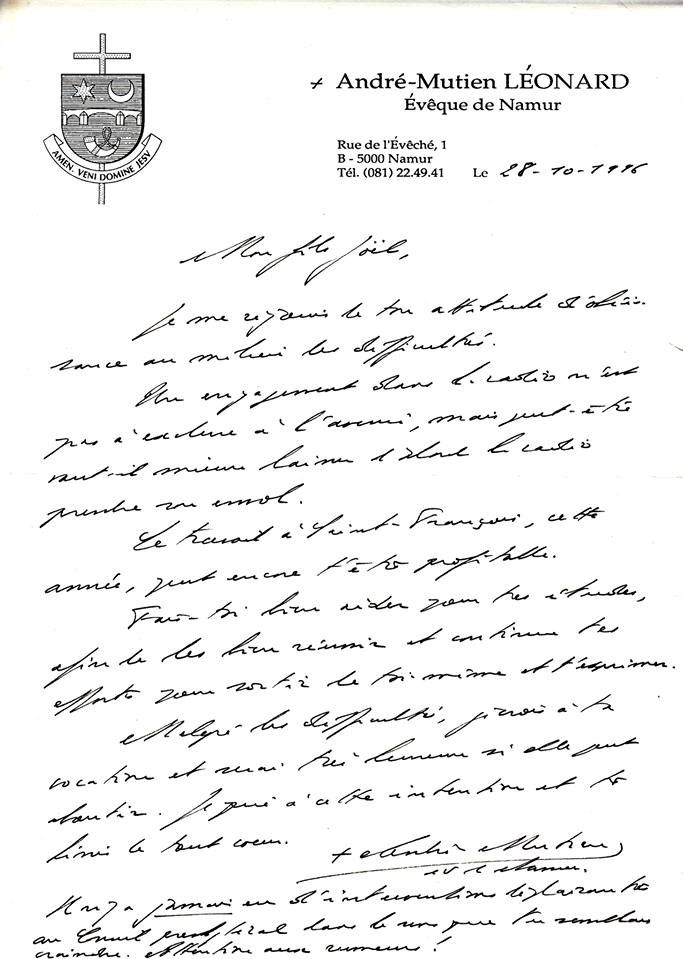 + André-Mutien LÉONARD
Évêque de Namur
Rue de l'Évêché, 1
B - 5000 Namur
Tél. (081) 22.49.41 Le 28-10-1996
AMEN. VENI DOMINE JESV
Mon fils Joël,
Je me réjouis de ton attitude d'obéis-
sance au milieu des difficultés.
Un engagement dans la radio n'est
pas à exclure à l'avenir, mais peut-être
vaut-il mieux laisser d'abord la radio
prendre son envol.
Le travail à Saint-François, cette
année, peut encore t'être profitable.
Fais-toi bien aider pour tes études,
afin de les bien réussir et continue tes
efforts pour sortir de toi-même et t'exprimer.
Malgré les difficultés, je crois à ta
vocation et serai très heureux si elle peut
aboutir. Je prie à cette intention et te
bénis de tout coeur.
+ André-Mutien
év. de Namur.
Il n'y a jamais eu d'interventions déplaisantes
au Conseil presbytéral dans le sens que tu semblais
craindre. Attention aux rumeurs !